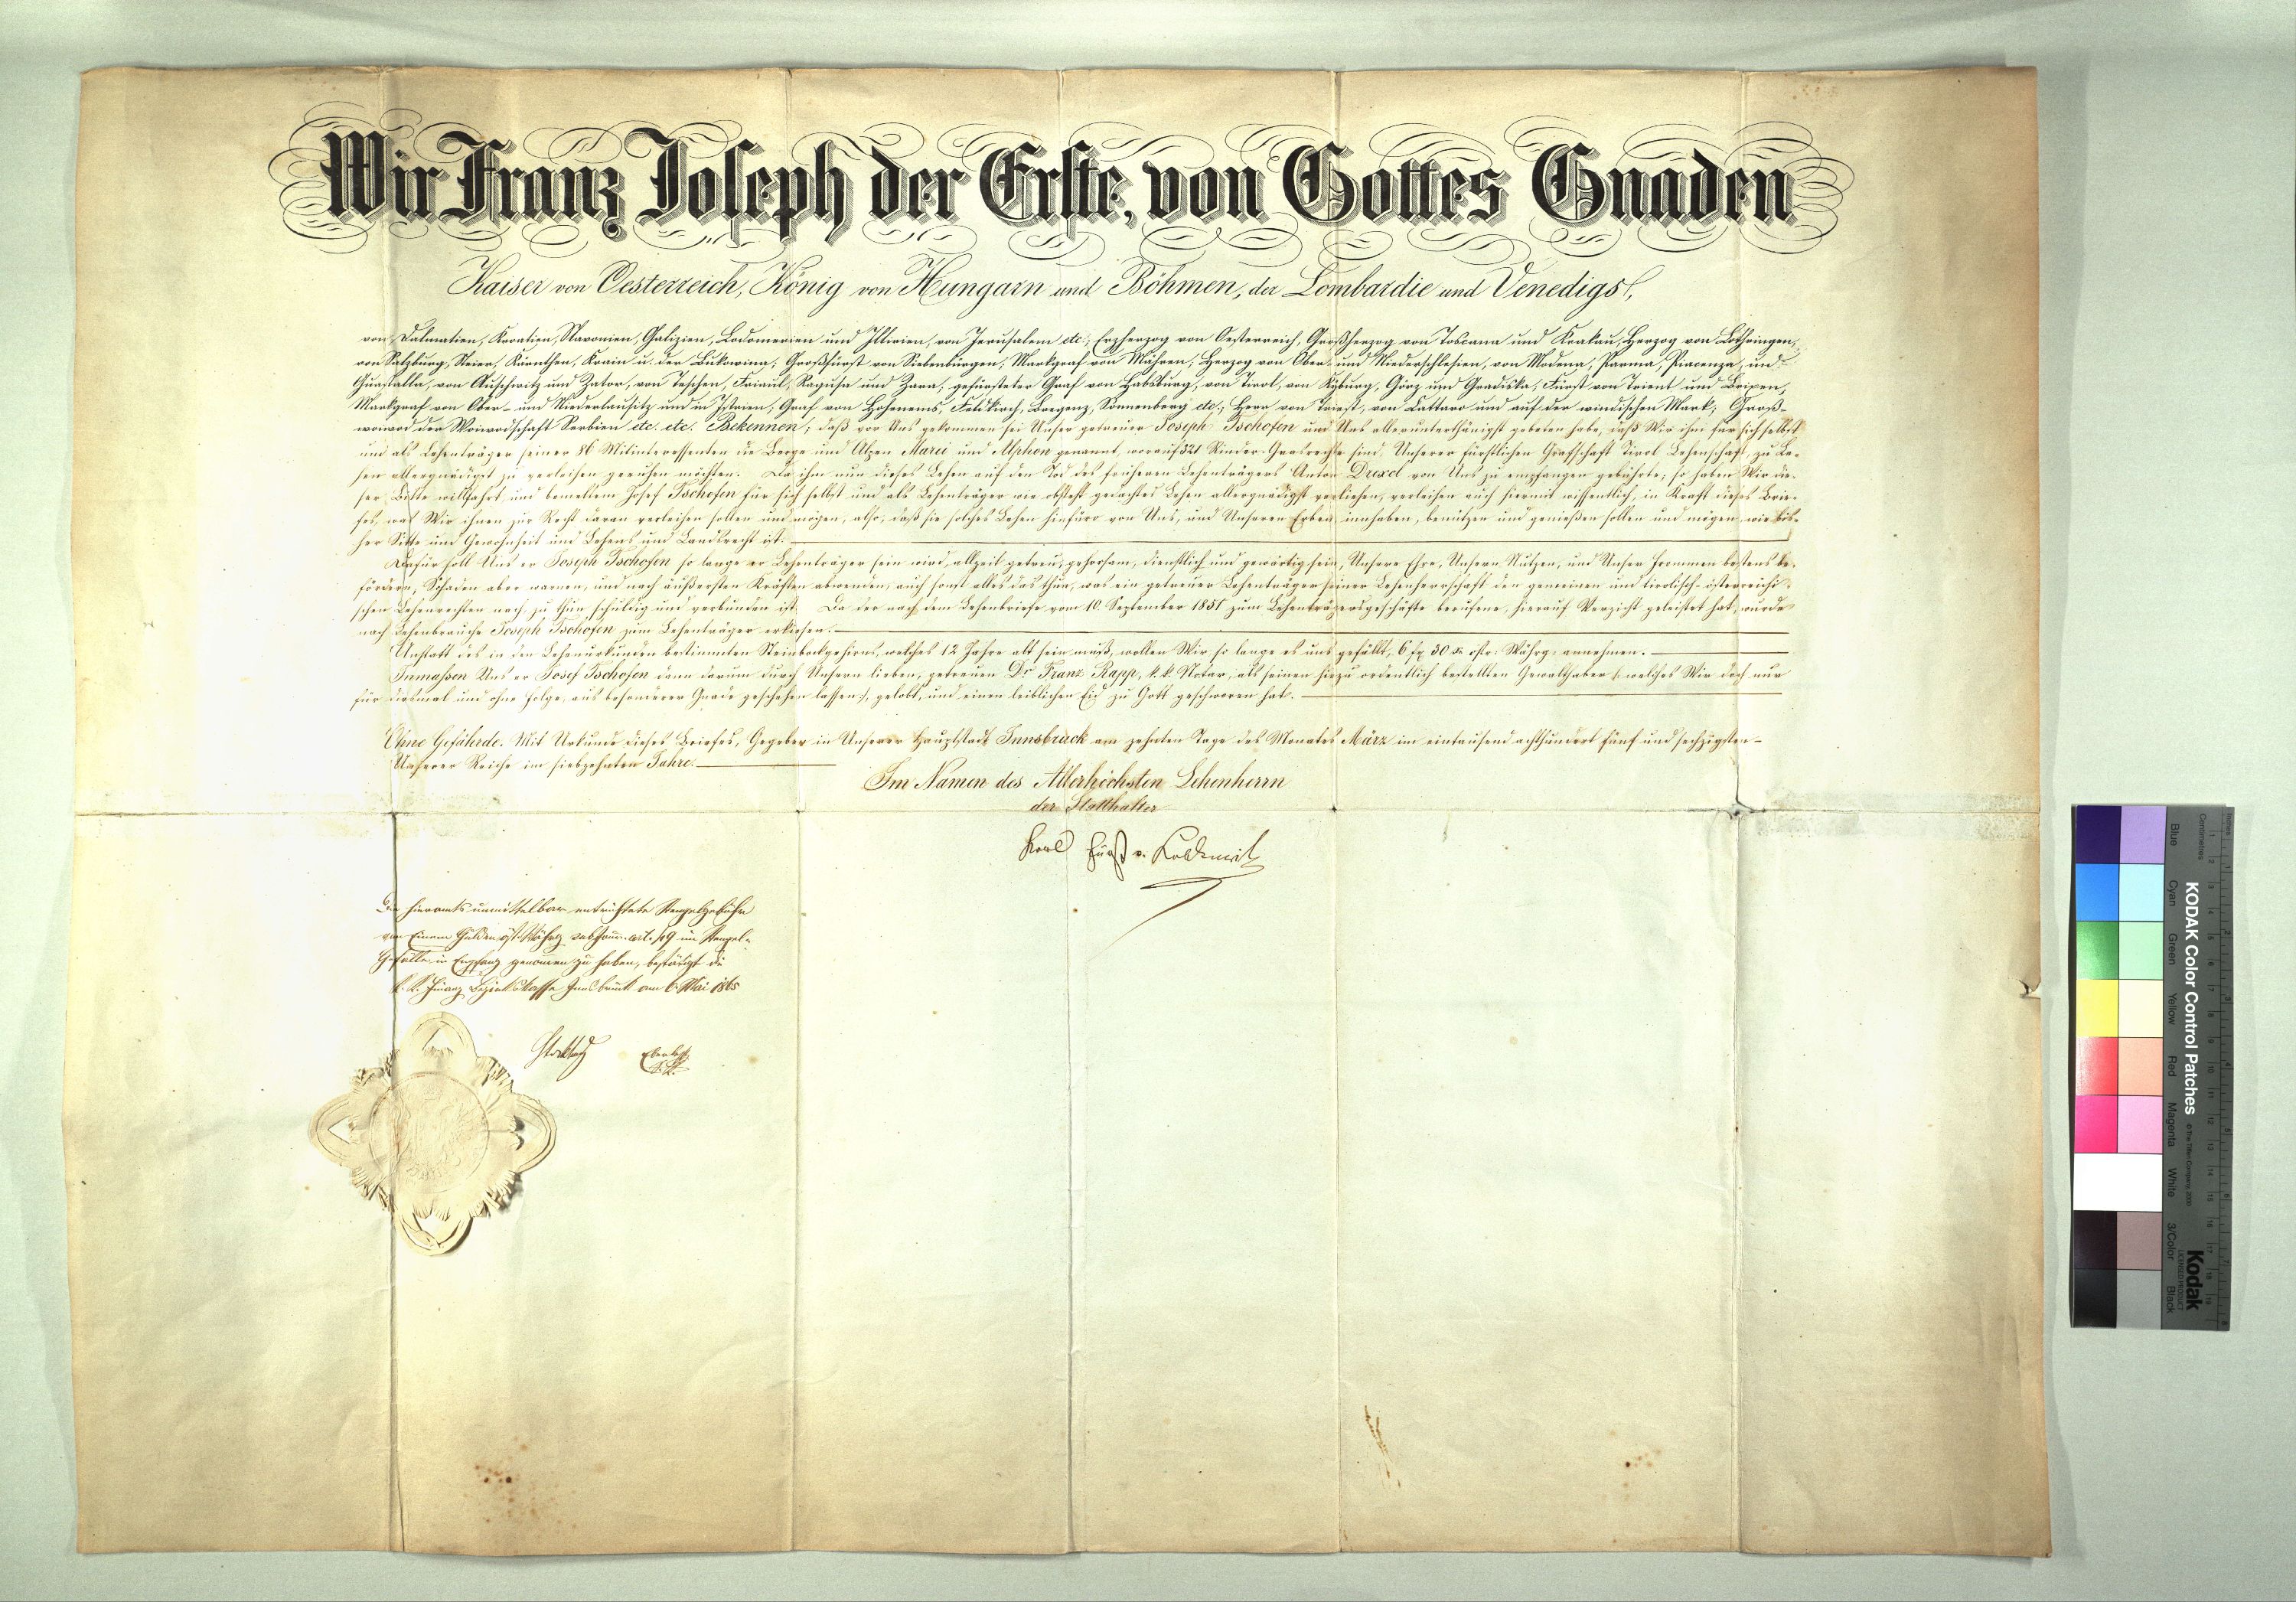 Wir Franz Joseph der Erste, von Gottes Gnaden
Kaiser von Oesterreich, König von Hungarn und Böhmen, der Lombardie und Venedigs,
von Dalmatien, Kroatien, Slavonien, Galizien, Lodomerien und Illirien, von Jerusalem etc; Erzherzog von Oesterreich, Großherzog von Toscana und Krakau, Herzog von Lothringen,
von Salzburg, Steier, Kärnthen, Krain u. der Bukowina; Großfürst von Siebenbürgen, Markgraf von Mähren, Herzog von Ober- und Niederschlesien, von Modena, Parma, Piacenza, und
Guastalla, von Auschwitz und Zator, von Teschen, Friaul, Ragusa und Zara; gefürsteter Graf von Habsburg, von Tirol, von Kyburg, Görz und Gradiska, Fürst von Trient und Brixen,
Markgraf von Ober- und Niederlausitz und in Istrien, Graf von Hohenems, Feldkirch, Bregenz, Sonnenberg etc.; Herr von Triest, von Cattaro und auf der windischen Mark; Groß-
woiwod der Woiwodschaft Serbien etc. etc. Bekennen; daß vor Uns gekommen sei Unser getreuer Joseph Tschofen und Uns allerunterthänigst gebeten habe, daß Wir ihm für sich selbst
und als Lehenträger seiner 86 Mitinteressenten die Berge und Alpen Marei und Alphon genannt, worauf 321 Rinder-Grasrechte sind, Unserer fürstlichen Grafschaft Tirol Lehenschaft, zu Le-
hen allergnädigst zu verleihen geruhen möchten. Da ihm nun dieses Lehen auf den Tod des früheren Lehenträgers Anton Drexel von Uns zu empfangen gebührte; so haben Wir die-
ser Bitte willfahrt, und bemeltem Josef Tschofen für sich selbst und als Lehenträger wie obsteht gedachtes Lehen allergnädigst verliehen, verleihen auch hiermit wissentlich, in Kraft dieses Brie-
fes, was Wir ihnen zu Recht daran verleihen sollen und mögen, also, daß sie solches Lehen hinfüro von Uns, und Unseren Erben innhaben, benützen und genießen sollen und mögen, wie bis-
her Sitte und Gewohnheit und Lehens und Landsrecht ist.
Dafür soll Uns er Joseph Tschofen so lange er Lehenträger sein wird, allzeit getreu, gehorsam, dienstlich und gewärtig sein, Unsere Ehre, Unsern Nutzen, und Unser Frommen bestens be-
fördern, Schaden aber warnen, und nach äußersten Kräften abwenden; auch sonst alles das thun, was ein getreuer Lehenträger seiner Lehenherrschaft den gemeinen und tirolisch-österreichi-
schen Lehenrechten nach zu thun schuldig und verbunden ist. Da der nach dem Lehenbriefe vom 10. September 1851 zum Lehenträgersgeschäfte berufene, hierauf Verzicht geleistet hat, wurde
nach Lehenbrauche Joseph Tschofen zum Lehenträger erkiesen.
Anstatt des in den Lehenurkunden bestimmten Steinbockgehirns, welches 12 Jahre alt sein muß, wollen Wir so lange es uns gefällt, 6 f 30 x östr. Währg. annehmen.
Inmassen Uns er Josef Tschofen dann darum durch Unsern lieben, getreuen Dr Franz Rapp, k.k. Notar, als seinen hiezu ordentlich bestellten Gewalthaber (: welches Wir doch nur
für diesmal und ohne Folge, aus besonderer Gnade geschehen lassen :), gelobt, und einen leiblichen Eid zu Gott geschworen hat.
Ohne Gefährde. Mit Urkunde dieses Briefes, Gegeben in Unserer Hauptstadt Innsbruck am zehnten Tage des Monates März im eintausend achthundert fünf und sechzigsten
Unserer Reiche im siebzehnten Jahre.
Im Namen des Allerhöchsten Lehenherrn
der Statthalter
Karl Fürst v. Lobkowitz
Die hieramts unmittelbar entrichtete Stempelgebühr
von Einem Gulden öst. Währg. sub Jour. art. 189 im Stempel-
Gefälle in Empfang genommen zu haben, bestätigt die
k. k. Finanz Bezirkskasse Innsbruck am 6. Mai 1865
KODAK Color Control Patches
© The Tiffen Company, 2000
Kodak
LICENSED PRODUCT
Blue Cyan Green Yellow Red Magenta White 3/Color Black
Inches
Centimetres